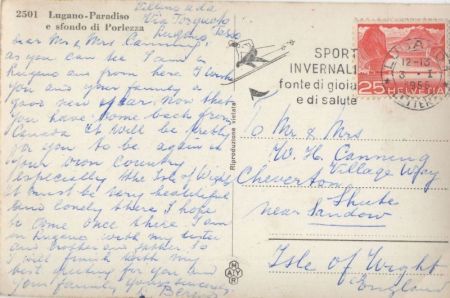 2501 Lugano-Paradiso
e sfondo di Porlezza
Villa Ada
Via
Lugano
Dear Mr & Mrs Canning,
as you can see I am in
Lugano and from here I wish
you and your family a
good new year. Now that
you have come back from
Canada it will be pretty
for you to be again in
your own country
especially the Isle of Wight
it must be very beautiful
and lonely there I hope
to come once there I am
in Lugano with my sister
and brother and father. So
I will finish with my
best greeting for you and
your family, yours sincerely
SPORT
INVERNALI
fonte di gioia
e di salute
LUGANO
12-13
3-I
25 HELVETIA
Riproduzione vietata
MAYR
To Mr & Mrs
W. H. Canning
Cheverton Village Way
Shute
near Sandow
Isle of Wight
England